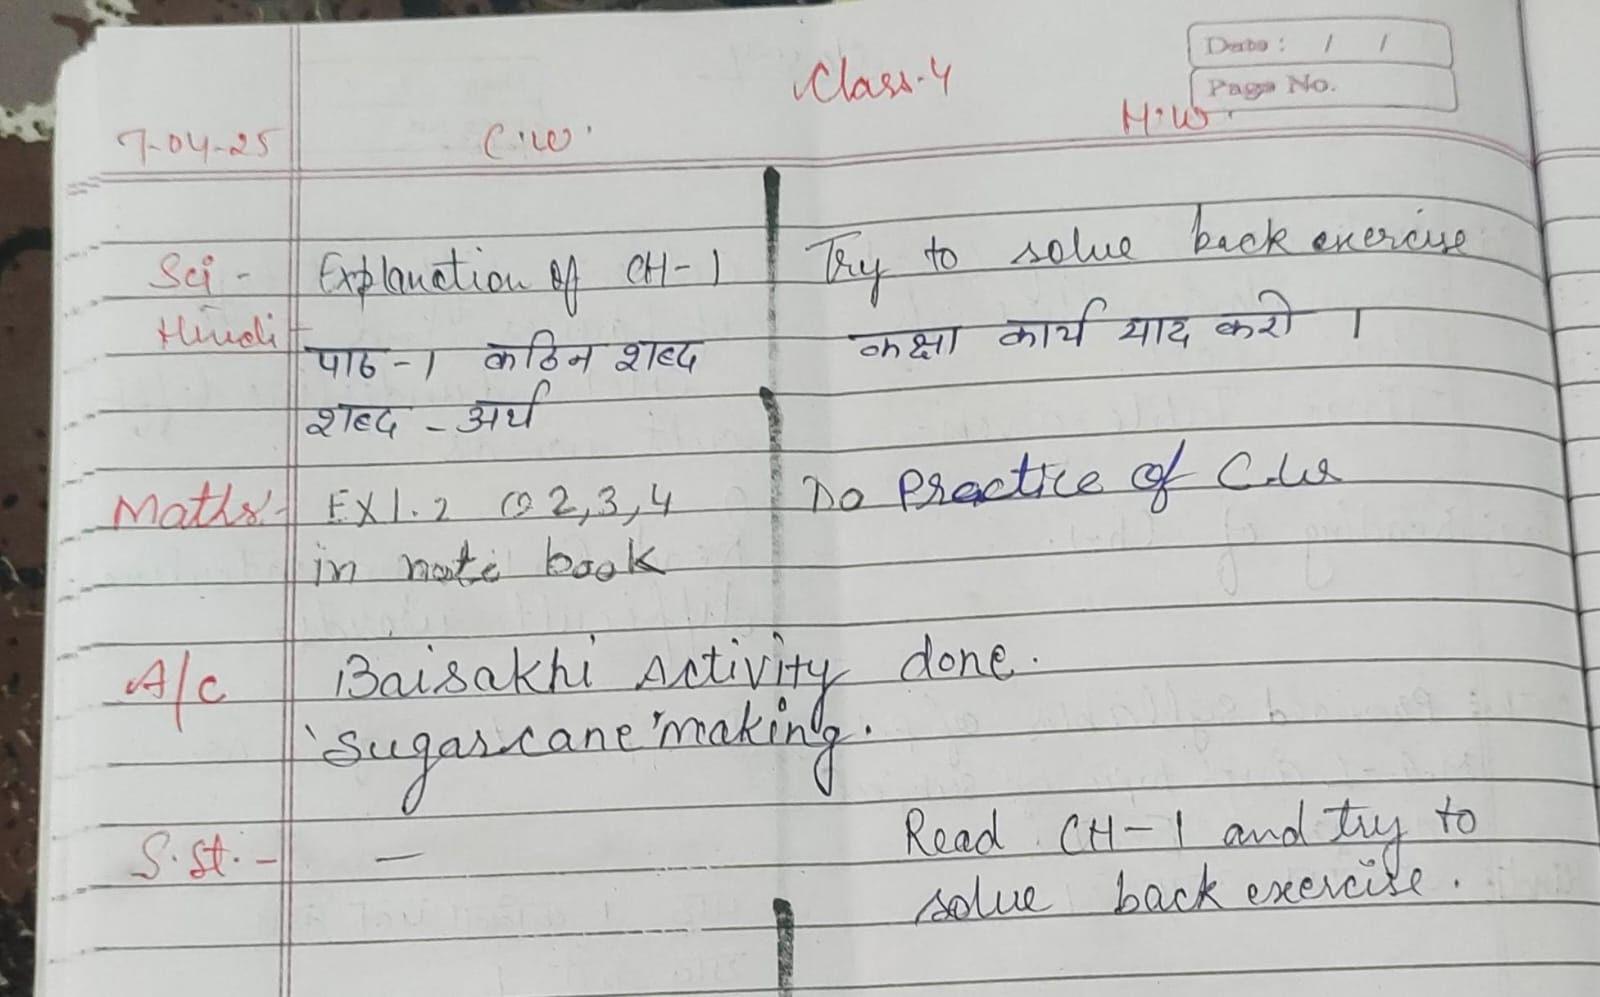 Date: / /
Class-4
Page No.
7-04-25 C.W. H.W.
Sci - Explanation of CH-1 Try to solve back exercise
Hindi - पाठ-1 कठिन शब्द कक्षा कार्य याद करो ।
शब्द - अर्थ
Maths - EX 1.2 Q 2,3,4 Do Practice of C.W
in note book
A/c Baisakhi Activity done.
'sugarcane' making.
S.St. - — Read CH-1 and try to
solve back exercise.